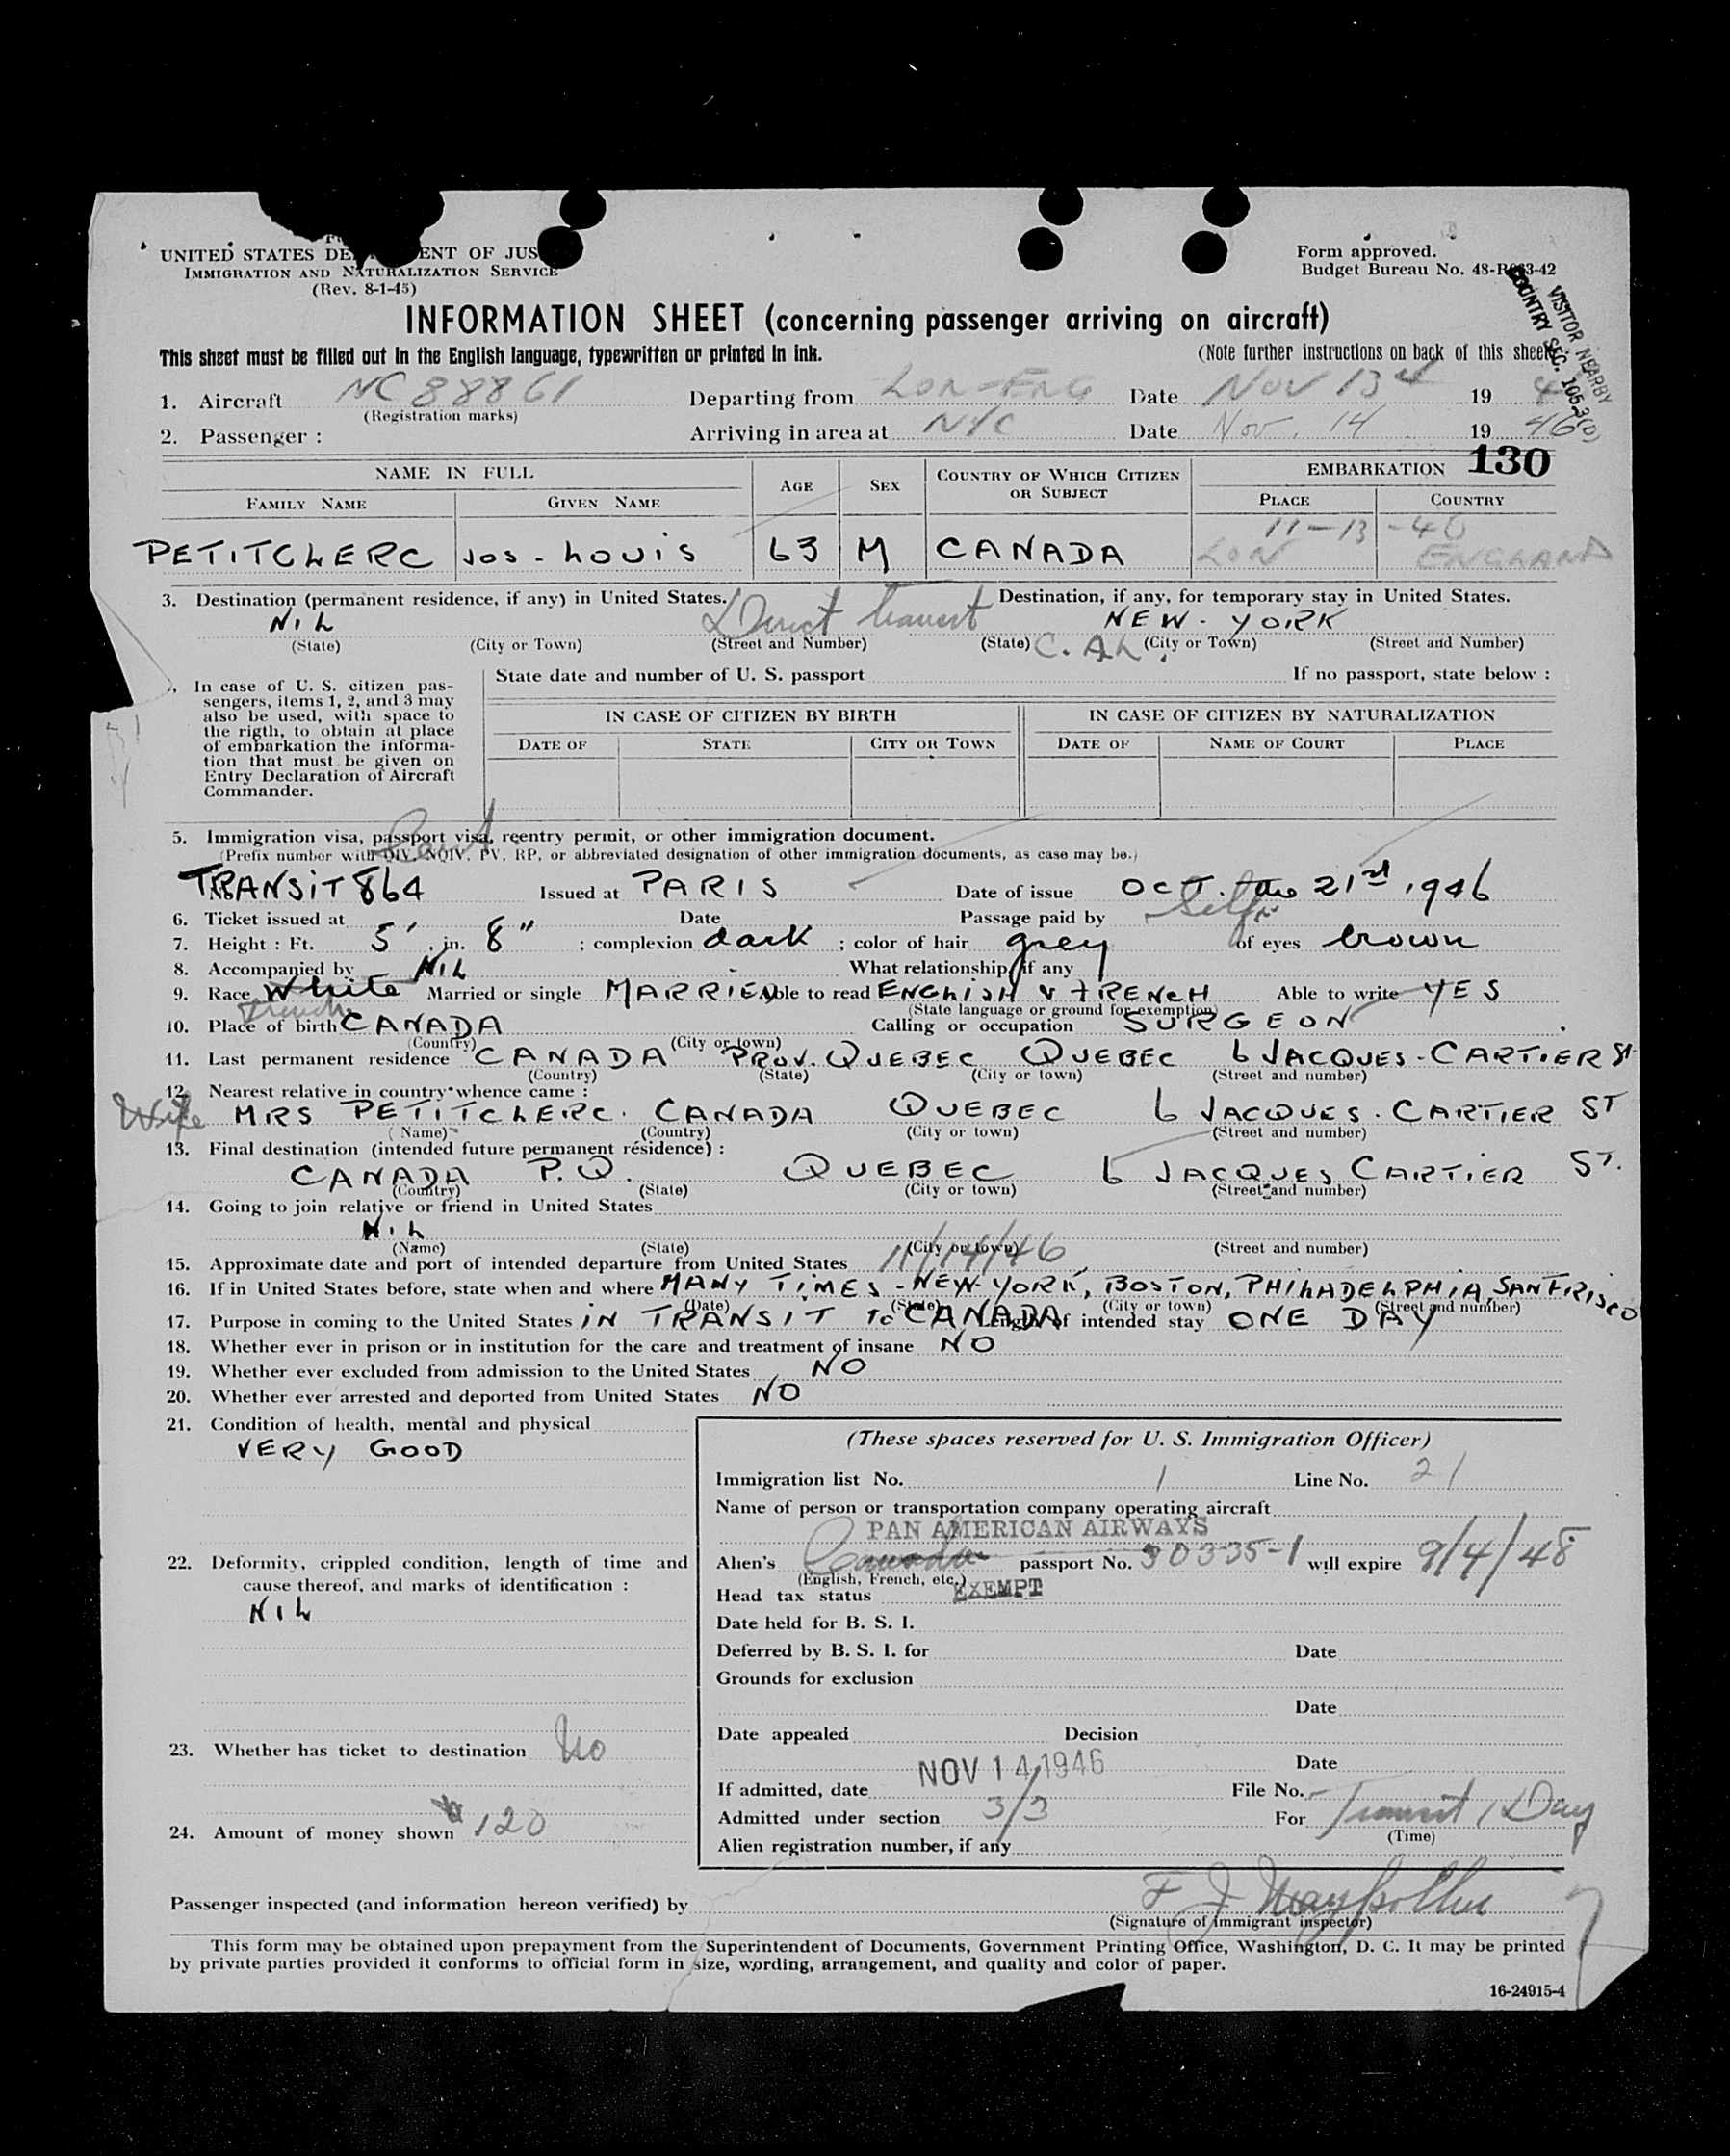 UNITED STATES DE ENT OF JUS
IMMIGRATION AND NATURALIZATION SERVICE
(Rev. 8-1-45)
Form approved.
Budget Bureau No. 48-R063-42
VISITOR NEARBY
COUNTRY SEC. 105.3(D)
INFORMATION SHEET (concerning passenger arriving on aircraft)
This sheet must be filled out in the English language, typewritten or printed in ink.
(Note further instructions on back of this sheet
1. Aircraft NC 88861 Departing from LON-ENG Date NOV 13 19 4
(Registration marks)
2. Passenger : Arriving in area at NYC Date Nov. 14 19 46
130
NAME IN FULL AGE SEX COUNTRY OF WHICH CITIZEN OR SUBJECT EMBARKATION
FAMILY NAME GIVEN NAME PLACE COUNTRY
11-13-46
PETITCLERC JOS-LOUIS 63 M CANADA LON ENGLAND
3. Destination (permanent residence, if any) in United States. Destination, if any, for temporary stay in United States.
NIL Direct transit NEW-YORK
(State) (City or Town) (Street and Number) (State) C. AL. (City or Town) (Street and Number)
In case of U. S. citizen pas-
sengers, items 1, 2, and 3 may
also be used, with space to
the rigth, to obtain at place
of embarkation the informa-
tion that must be given on
Entry Declaration of Aircraft
Commander.
State date and number of U. S. passport If no passport, state below :
IN CASE OF CITIZEN BY BIRTH IN CASE OF CITIZEN BY NATURALIZATION
DATE OF STATE CITY OR TOWN DATE OF NAME OF COURT PLACE
5. Immigration visa, passport visa, reentry permit, or other immigration document.
(Prefix number with QIV, NQIV, PV, RP, or abbreviated designation of other immigration documents, as case may be.)
TRANSIT 864 Issued at PARIS Date of issue OCT. the 21st, 1946
6. Ticket issued at Date Passage paid by Self
7. Height : Ft. 5' in. 8" ; complexion dark ; color of hair grey of eyes brown
8. Accompanied by NIL What relationship, if any
9. Race White Married or single MARRIED Able to read ENGLISH & FRENCH Able to write YES
French (State language or ground for exemption)
10. Place of birth CANADA Calling or occupation SURGEON
(Country) (City or town)
11. Last permanent residence CANADA PROV. QUEBEC QUEBEC 6 JACQUES-CARTIER St
(Country) (State) (City or town) (Street and number)
12. Nearest relative in country whence came :
Wife MRS PETITCLERC. CANADA QUEBEC 6 JACQUES-CARTIER ST
(Name) (Country) (City or town) (Street and number)
13. Final destination (intended future permanent résidence) :
CANADA P.Q. QUEBEC 6 JACQUES CARTIER ST.
(Country) (State) (City or town) (Street and number)
14. Going to join relative or friend in United States
NIL
(Name) (State) (City or town) (Street and number)
15. Approximate date and port of intended departure from United States 11/14/46
16. If in United States before, state when and where MANY TIMES - NEW-YORK, BOSTON, PHILADELPHIA, SANFRISCO
(Date) (State) (City or town) (Street and number)
17. Purpose in coming to the United States IN TRANSIT TO CANADA Length of intended stay ONE DAY
18. Whether ever in prison or in institution for the care and treatment of insane NO
19. Whether ever excluded from admission to the United States NO
20. Whether ever arrested and deported from United States NO
21. Condition of health, mental and physical
VERY GOOD
22. Deformity, crippled condition, length of time and
cause thereof, and marks of identification :
NIL
23. Whether has ticket to destination No
24. Amount of money shown 120
(These spaces reserved for U. S. Immigration Officer)
Immigration list No. 1 Line No. 21
Name of person or transportation company operating aircraft
PAN AMERICAN AIRWAYS
Alien's Canada passport No. 30335-1 will expire 9/4/48
(English, French, etc.)
Head tax status EXEMPT
Date held for B. S. I.
Deferred by B. S. I. for Date
Grounds for exclusion
Date
Date appealed Decision
Date
If admitted, date NOV 14 1946 File No.
Admitted under section 3/3 For Transit 1 Day
(Time)
Alien registration number, if any
Passenger inspected (and information hereon verified) by F J
(Signature of immigrant inspector)
This form may be obtained upon prepayment from the Superintendent of Documents, Government Printing Office, Washington, D. C. It may be printed
by private parties provided it conforms to official form in size, wording, arrangement, and quality and color of paper.
16-24915-4